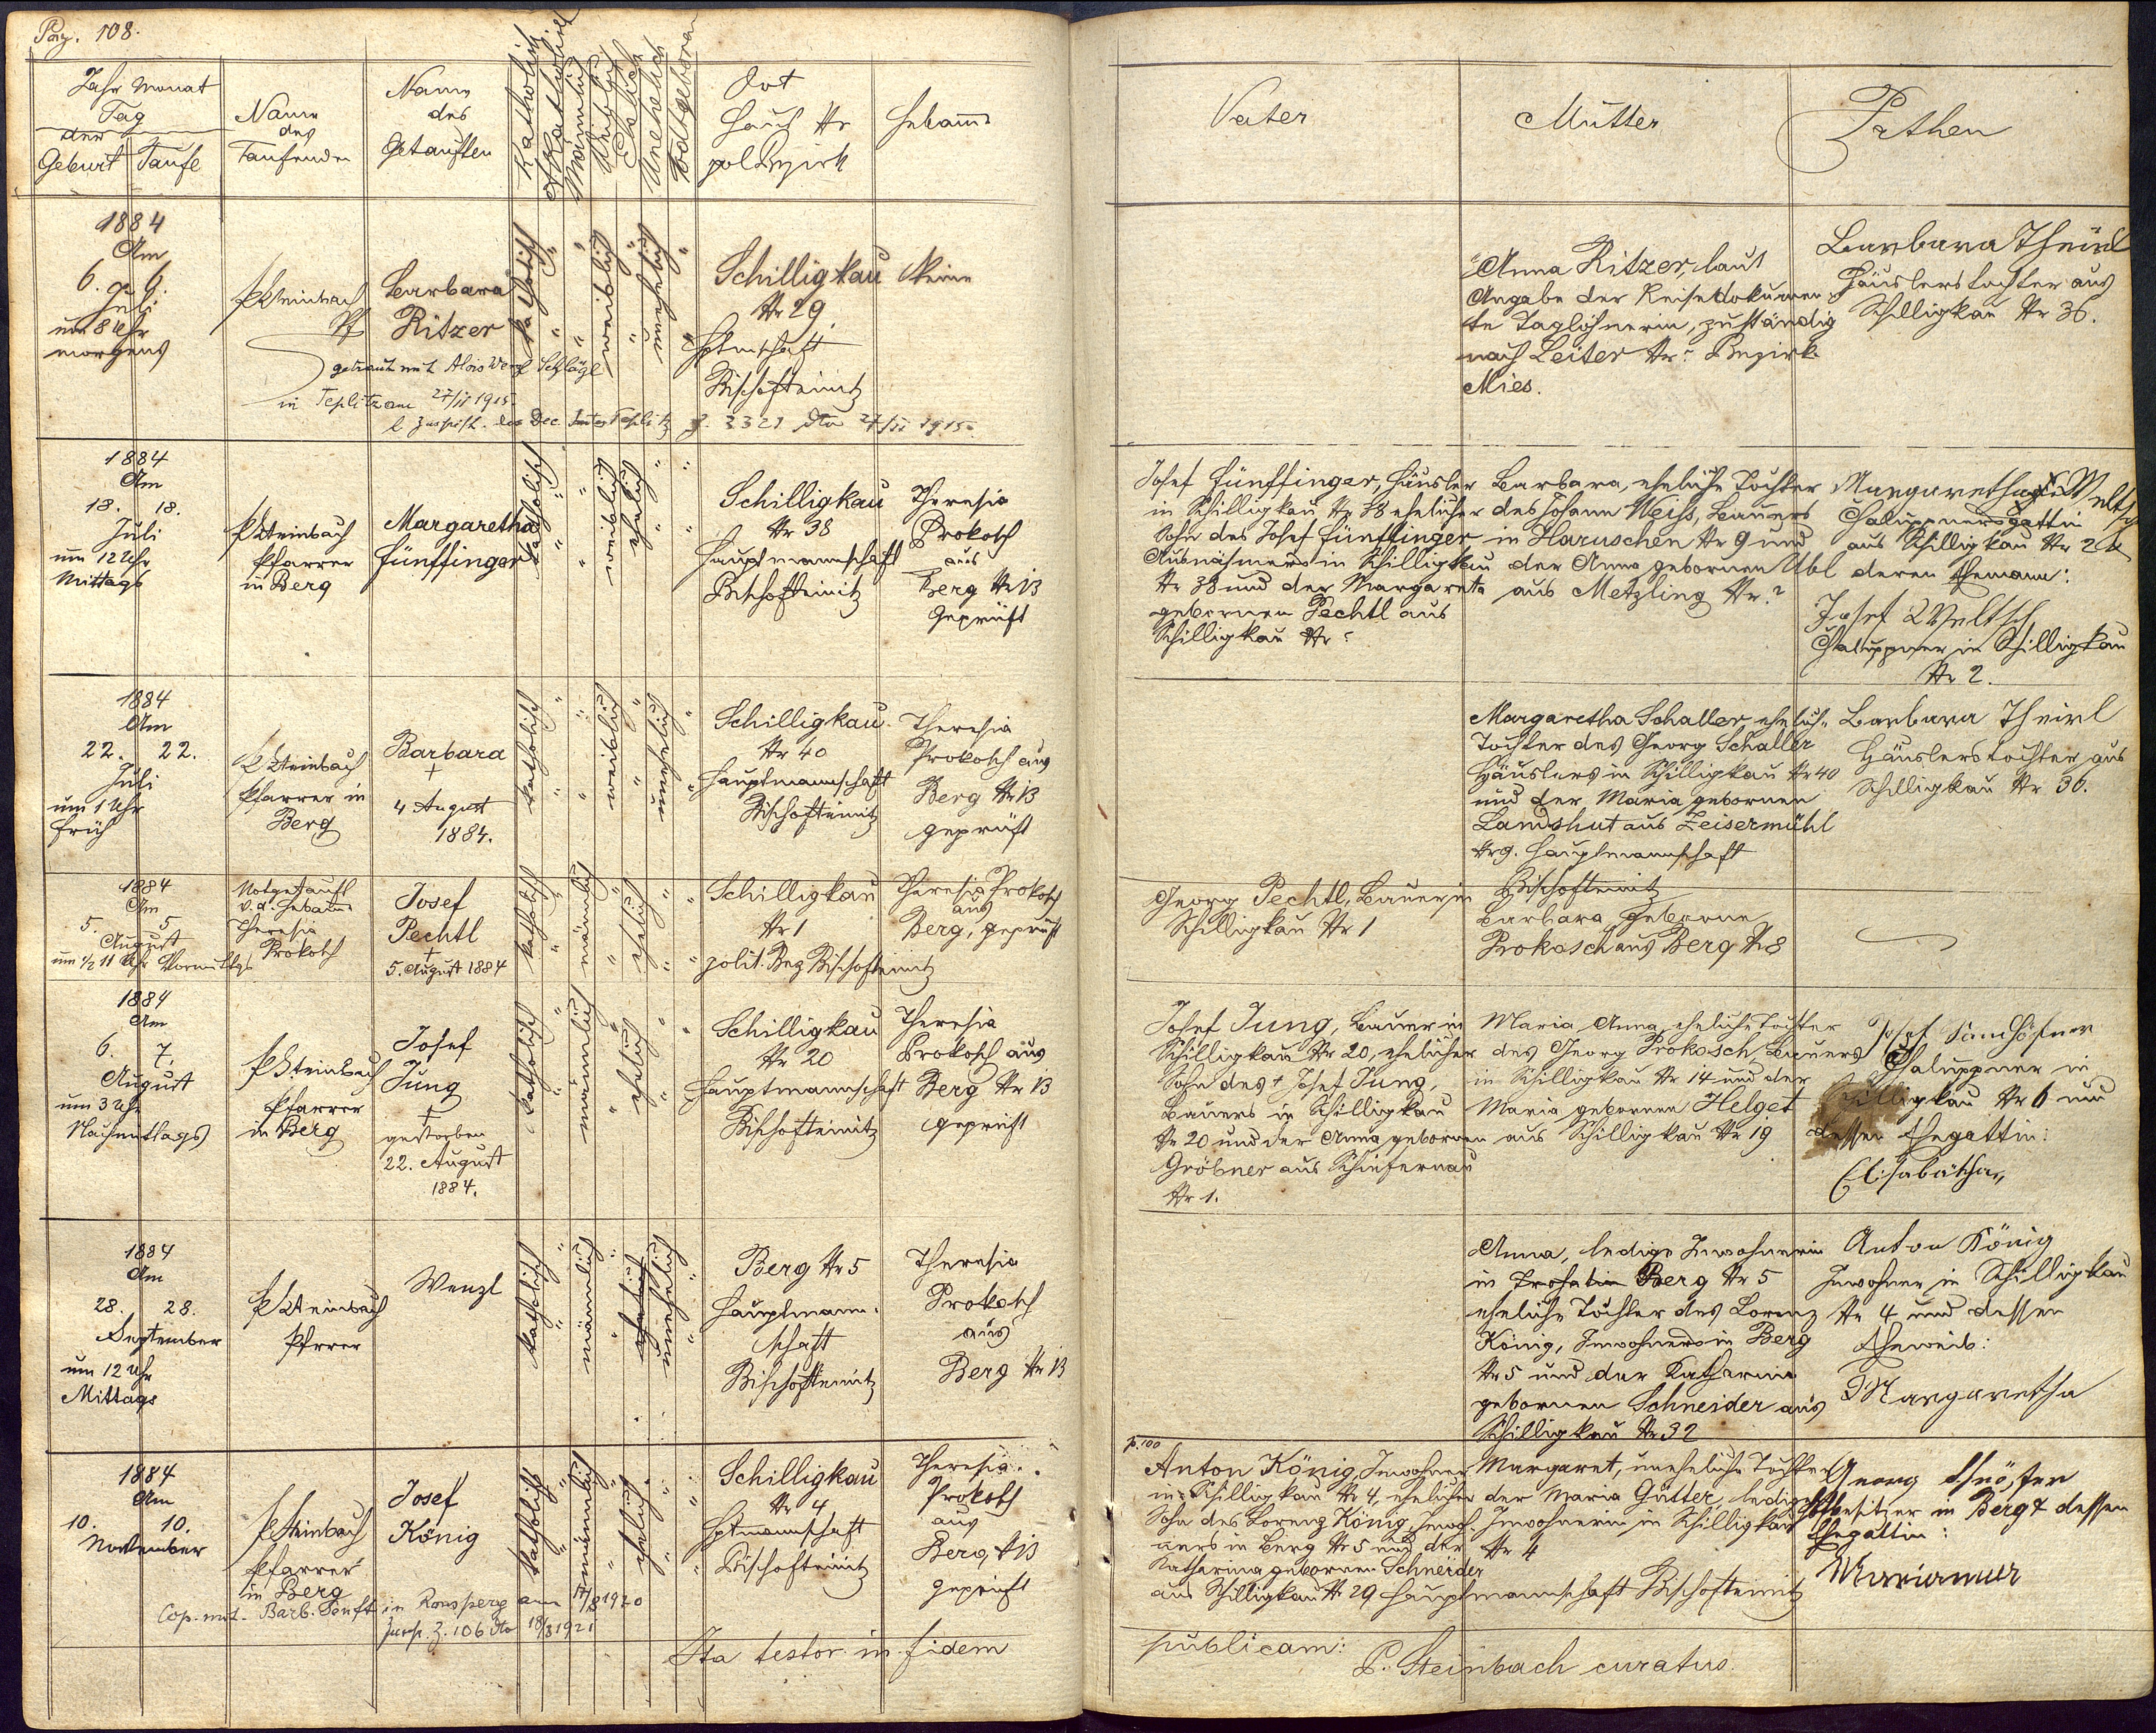 Pag. 108.
Jahr Monat
Tag
der
Geburt Taufe
Name
des
Taufenden
Name
des
Getauften
Katholisch
Akatholisch
Männlich
Weiblich
Ehelich
Unehelich
Todtgeboren
Ort
Haus Nr
pol Bezirk
Hebamme
Vater
Mutter
Pathen
1884
Am
6. 6.
Juli
um 8 Uhr
morgens
P Steinbach
Barbara
Ritzer
katholisch
weiblich
unehelich
Schilligkau
Nr 29
Hptmschaft
Bischofteinitz
keine
getraut mit Alois Wenzl Schlögl
in Teplitz am 27/II 1915.
Anna Ritzer, laut
Angabe der Reisedokumen
te Taglöhnerin, zuständig
nach Leiter Nr: Bezirk
Mies.
Barbara Theirl
Häuslerstochter aus
Schilligkau Nr 36.
1884
Am
18. 18.
Juli
um 12 Uhr
Mittags
P Steinbach
Pfarrer
in Berg
Margaretha
Fünffinger
katholisch
weiblich
ehelich
Schilligkau
Nr 38
Hauptmannschaft
Bischofteinitz
Theresia
Prokosch
aus
Berg Nr 13
Geprüft
Josef Fünffinger, Häusler
in Schilligkau Nr 38 ehelicher
Sohn des Josef Fünffinger
Ausnähmers in Schilligkau
Nr 38 und der Margareta
gebornen Pechtl aus
Schilligkau Nr:
Barbara, eheliche Tochter
des Johann Weiss, Bauers
in Haruschen Nr 9 und
der Anna gebornen Übl
aus Metzling Nr. ?
Margaretha Weltsch
Chaluppnersgattin
aus Schilligkau Nr 2 &
deren Ehemann:
Josef Weltsch
Chaluppner in Schilligkau
Nr 2.
1884
Am
22. 22.
Juli
um 1 Uhr
früh
P Steinbach
Pfarrer in
Berg
Barbara
+
4 August
1884.
katholisch
weiblich
unehelich
Schilligkau
Nr 40
Hauptmannschaft
Bischofteinitz
Theresia
Prokosch aus
Berg Nr 13
geprüft
Margaretha Schaller, ehelich.
Tochter des Georg Schaller
Häuslers in Schilligkau Nr 40
und der Maria gebornen
Landshut aus Zeisermühl
Nr 9. Hauptmannschaft
Bischofteinitz
Barbara Theirl
Häuslerstochter aus
Schilligkau Nr 36.
1884
Am
5. 5
August
um 1/2 11 Uhr Vormittgs
Notgetauft
v. d. Hebamme
Theresia
Prokosch
Josef
Pechtl
+
5. August 1884
katholisch
männlich
ehelich
Schilligkau
Nr 1
polit. Bez Bischofteinitz
Theresia Prokosch
aus
Berg, geprüft
Georg Pechtl, Bauer in
Schilligkau Nr 1
Barbara geborne
Prokosch aus Berg Nr 8
1884
Am
6. 7.
August
um 3 Uhr
Nachmittags
P Steinbach
Pfarrer
in Berg
Josef
Jung
+
gestorben
22. August
1884.
katholisch
männlich
ehelich
Schilligkau
Nr 20
Hauptmannschaft
Bischofteinitz
Theresia
Prokosch aus
Berg Nr 13
geprüft
Josef Jung, Bauer in
Schilligkau Nr 20, ehelicher
Sohn des + Josef Jung,
Bauers in Schilligkau
Nr 20 und der Anna, gebornen
Gröbner aus Schiefernau
Nr 1.
Maria Anna eheliche Tochter
des Georg Prokosch, Bauers
in Schilligkau Nr 14 und der
Maria gebornen Helget
aus Schilligkau Nr 19
Josef
Chaluppner in
Schilligkau Nr 6 und
dessen Ehegattin:
Elisabätha
1884
Am
28. 28.
September
um 12 Uhr
Mittags
P Steinbach
Pfrrer
Wenzl
katholisch
männlich
ehelich
unehelich
Berg Nr 5
Hauptmann-
schaft
Bischofteinitz
Theresia
Prokosch
aus
Berg Nr 13
Anna, ledige Inwohnerin
in Berg Nr 5
eheliche Tochter des Lorenz
König, Inwohners in Berg
Nr 5 und der Katharina
gebornen Schneider aus
Schilligkau Nr 32
Anton König
Inwohner in Schilligkau
Nr 4 und dessen
Eheweib:
Margaretha
1884
Am
10. 10.
November
P Steinbach
Pfarrer
in Berg
Josef
König
katholisch
männlich
ehelich
Schilligkau
Nr 4
Hptmannschaft
Bischofteinitz
Theresia
Prokosch
aus
Berg, Nr 13
geprüft
Cop. mit Barb. Senft in Ronsperg am 17/8 1920
Zusp. Z. 106 dto 18/3 1921
p. 100
Anton König, Inwohner
in Schilligkau Nr 4, ehelicher
Sohn des Lorenz König, Inwoh-
ners in Berg Nr 5 und der
Katharina gebornen Schneider
aus Schilligkau Nr 29 Hauptmannschaft Bischofteinitz
Margaret, uneheliche Tochter
der Maria Gütter, ledige
Inwohnerin in Schilligkau
Nr 4
Georg
Hofbesitzer in Berg & dessen
Ehegattin:
Ita testor in fidem publicam:
P. Steinbach curatus.